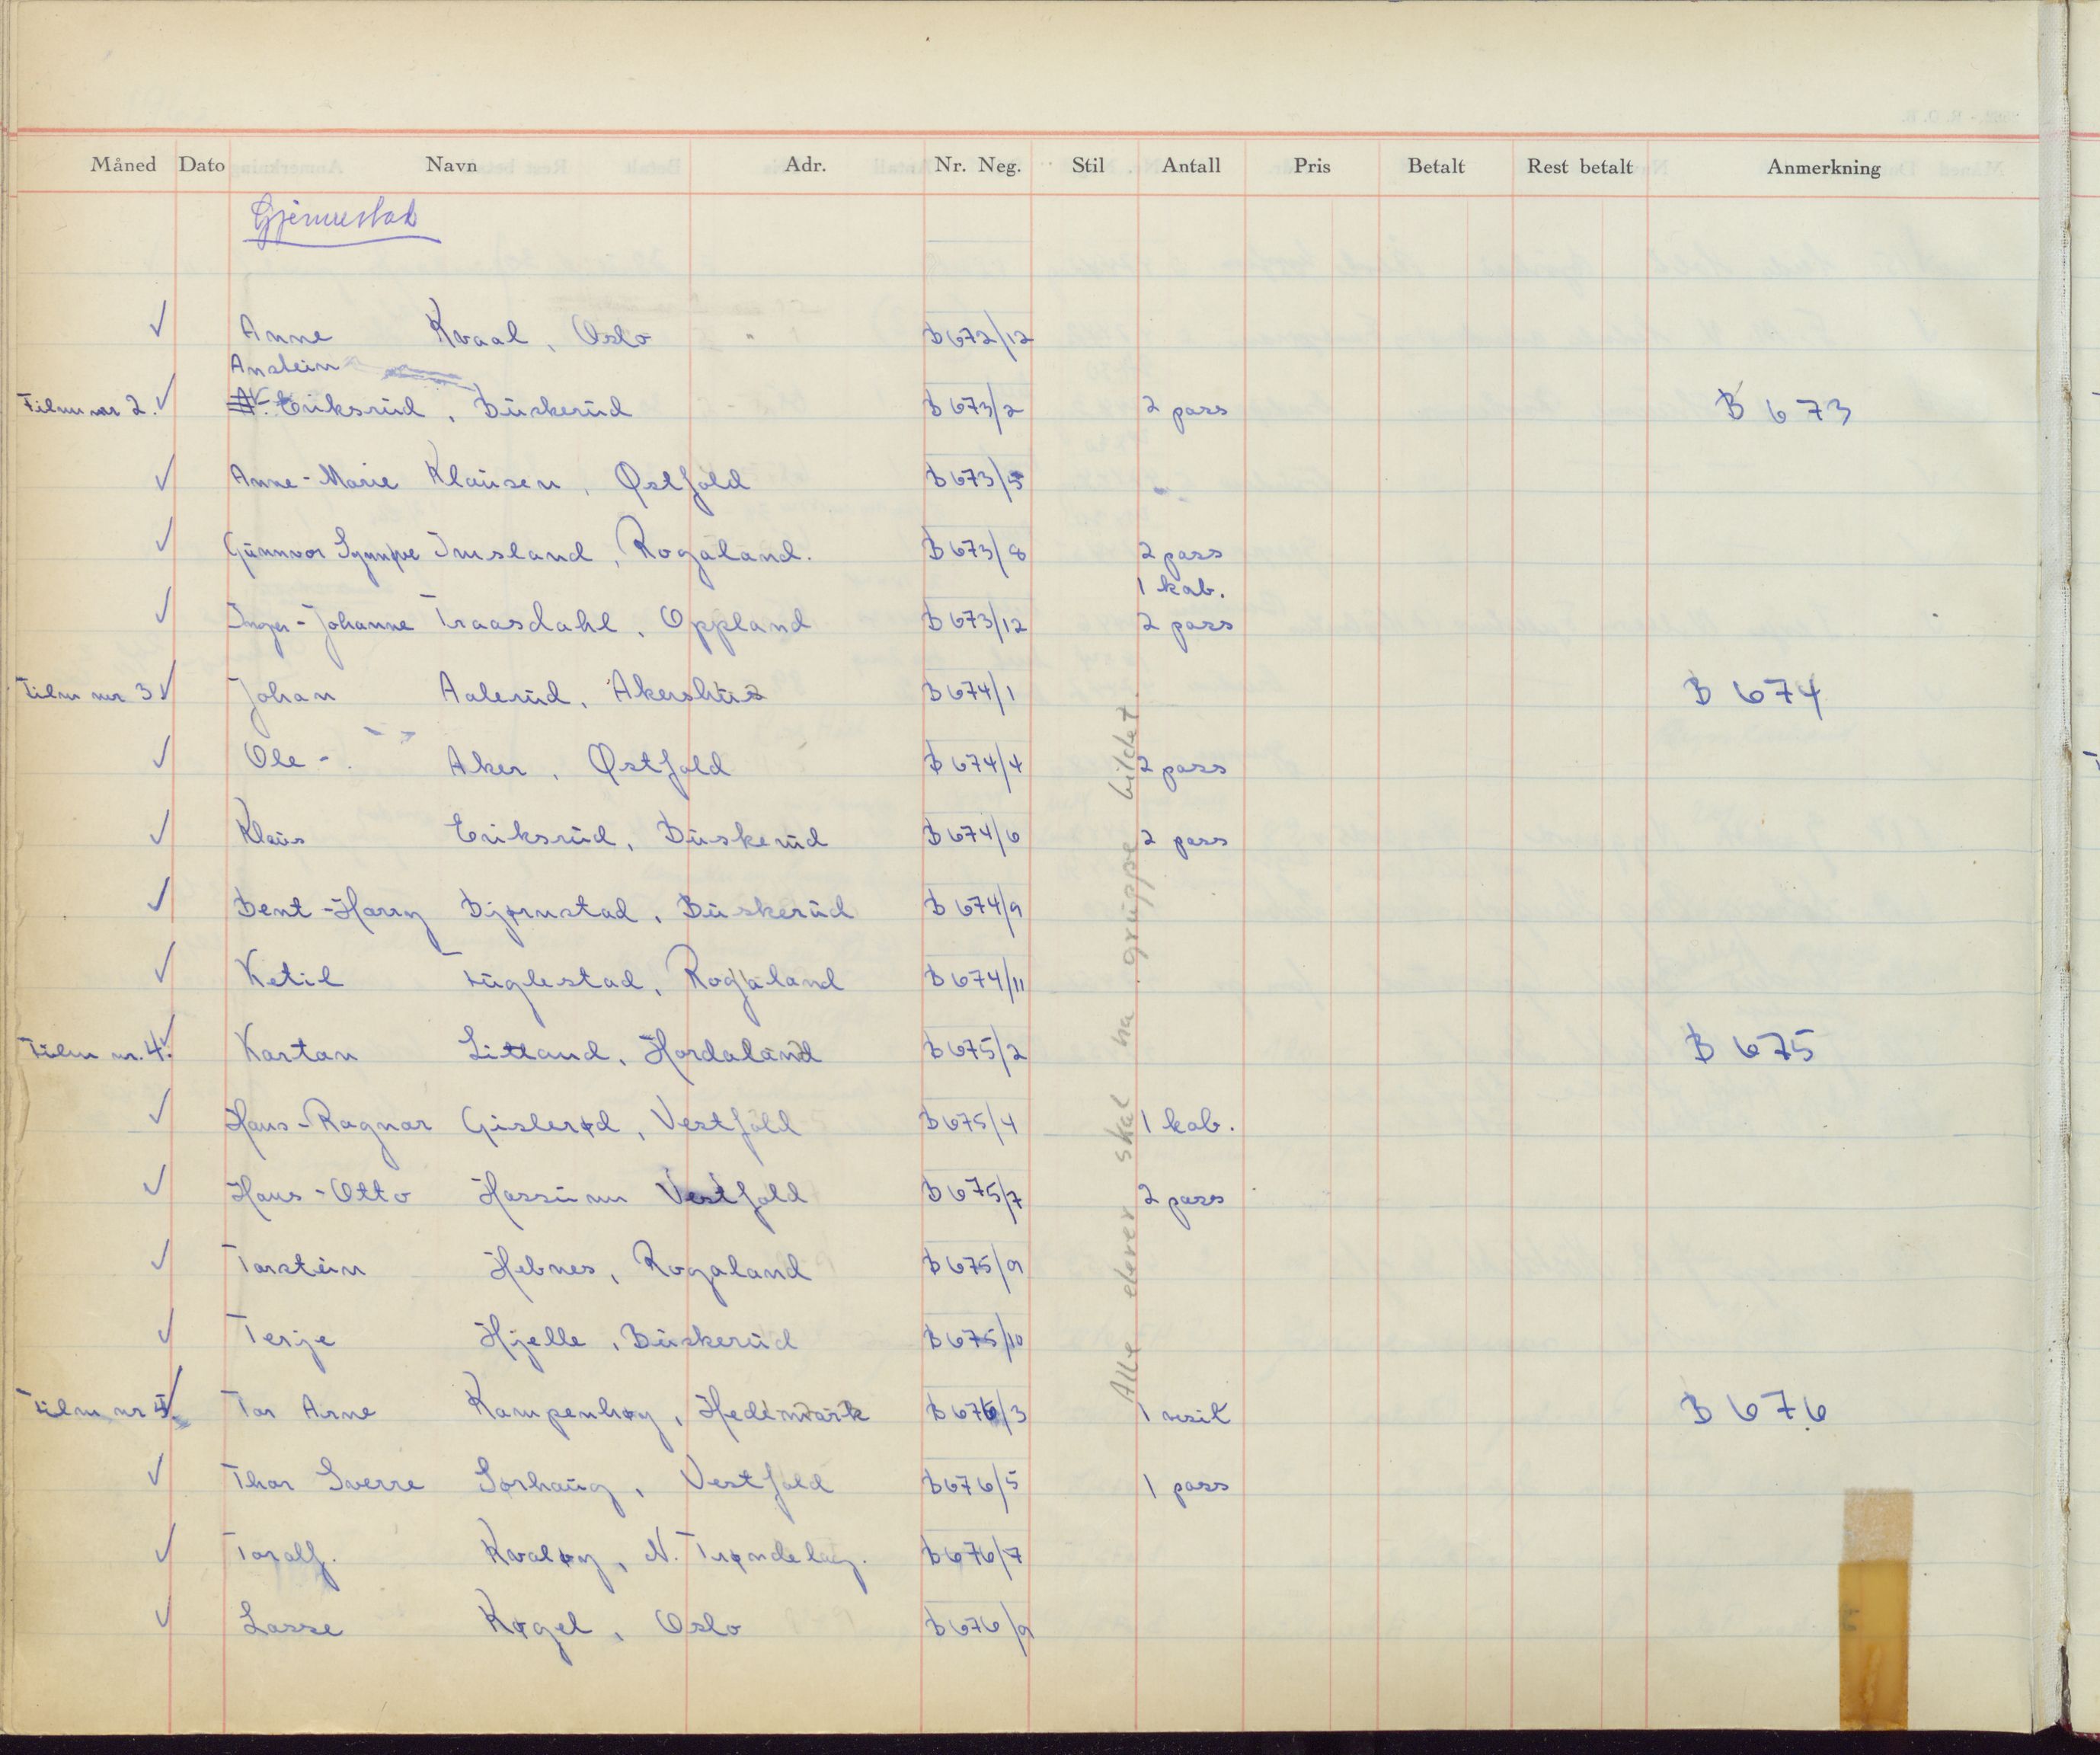 Måned Dato Navn Adr. Nr. Neg. Stil Antall Pris Betalt Rest betalt Anmerkning
Gjennestad
✓ Anne Kvaal, Oslo B 672/12
Anstein
Film nr 2. ✓ Eriksrud, Buskerud B 673/2 2 pass B 673
✓ Anne-Marie Klausen, Østfold B 673/5
✓ Gunnvor Synnøve Imsland, Rogaland. B 673/8 2 pass
1 kab.
✓ Inger-Johanne Traasdahl, Oppland B 673/12 2 pass
Film nr 3 ✓ Johan Aalerud, Akershus B 674/1 B 674
✓ Ole - Aker, Østfold B 674/4 2 pass
✓ Klaus Eriksrud, Buskerud B 674/6 2 pass
✓ Bent-Harry Bjørnstad, Buskerud B 674/9
✓ Ketil Fuglestad, Rogaland B 674/11
Film nr. 4. ✓ Kartan Litland, Hordaland B 675/2 B 675
✓ Hans-Ragnar Gislerød, Vestfold B 675/4 1 kab.
✓ Hans-Otto Hassum Vestfold B 675/7 2 pass
✓ Torstein Hebnes, Rogaland B 675/9
✓ Terje Hjelle, Buskerud B 675/10
Film nr 5. ✓ Tor Arne Kampenhøy, Hedemark B 676/3 1 visit B 676
✓ Thor Sverre Sørhaug, Vestfold B 676/5 1 pass
✓ Toralf. Kvaløy, N. Trøndelag. B 676/7
✓ Lasse Kogel, Oslo B 676/9
Alle elever skal ha gruppe bildet.